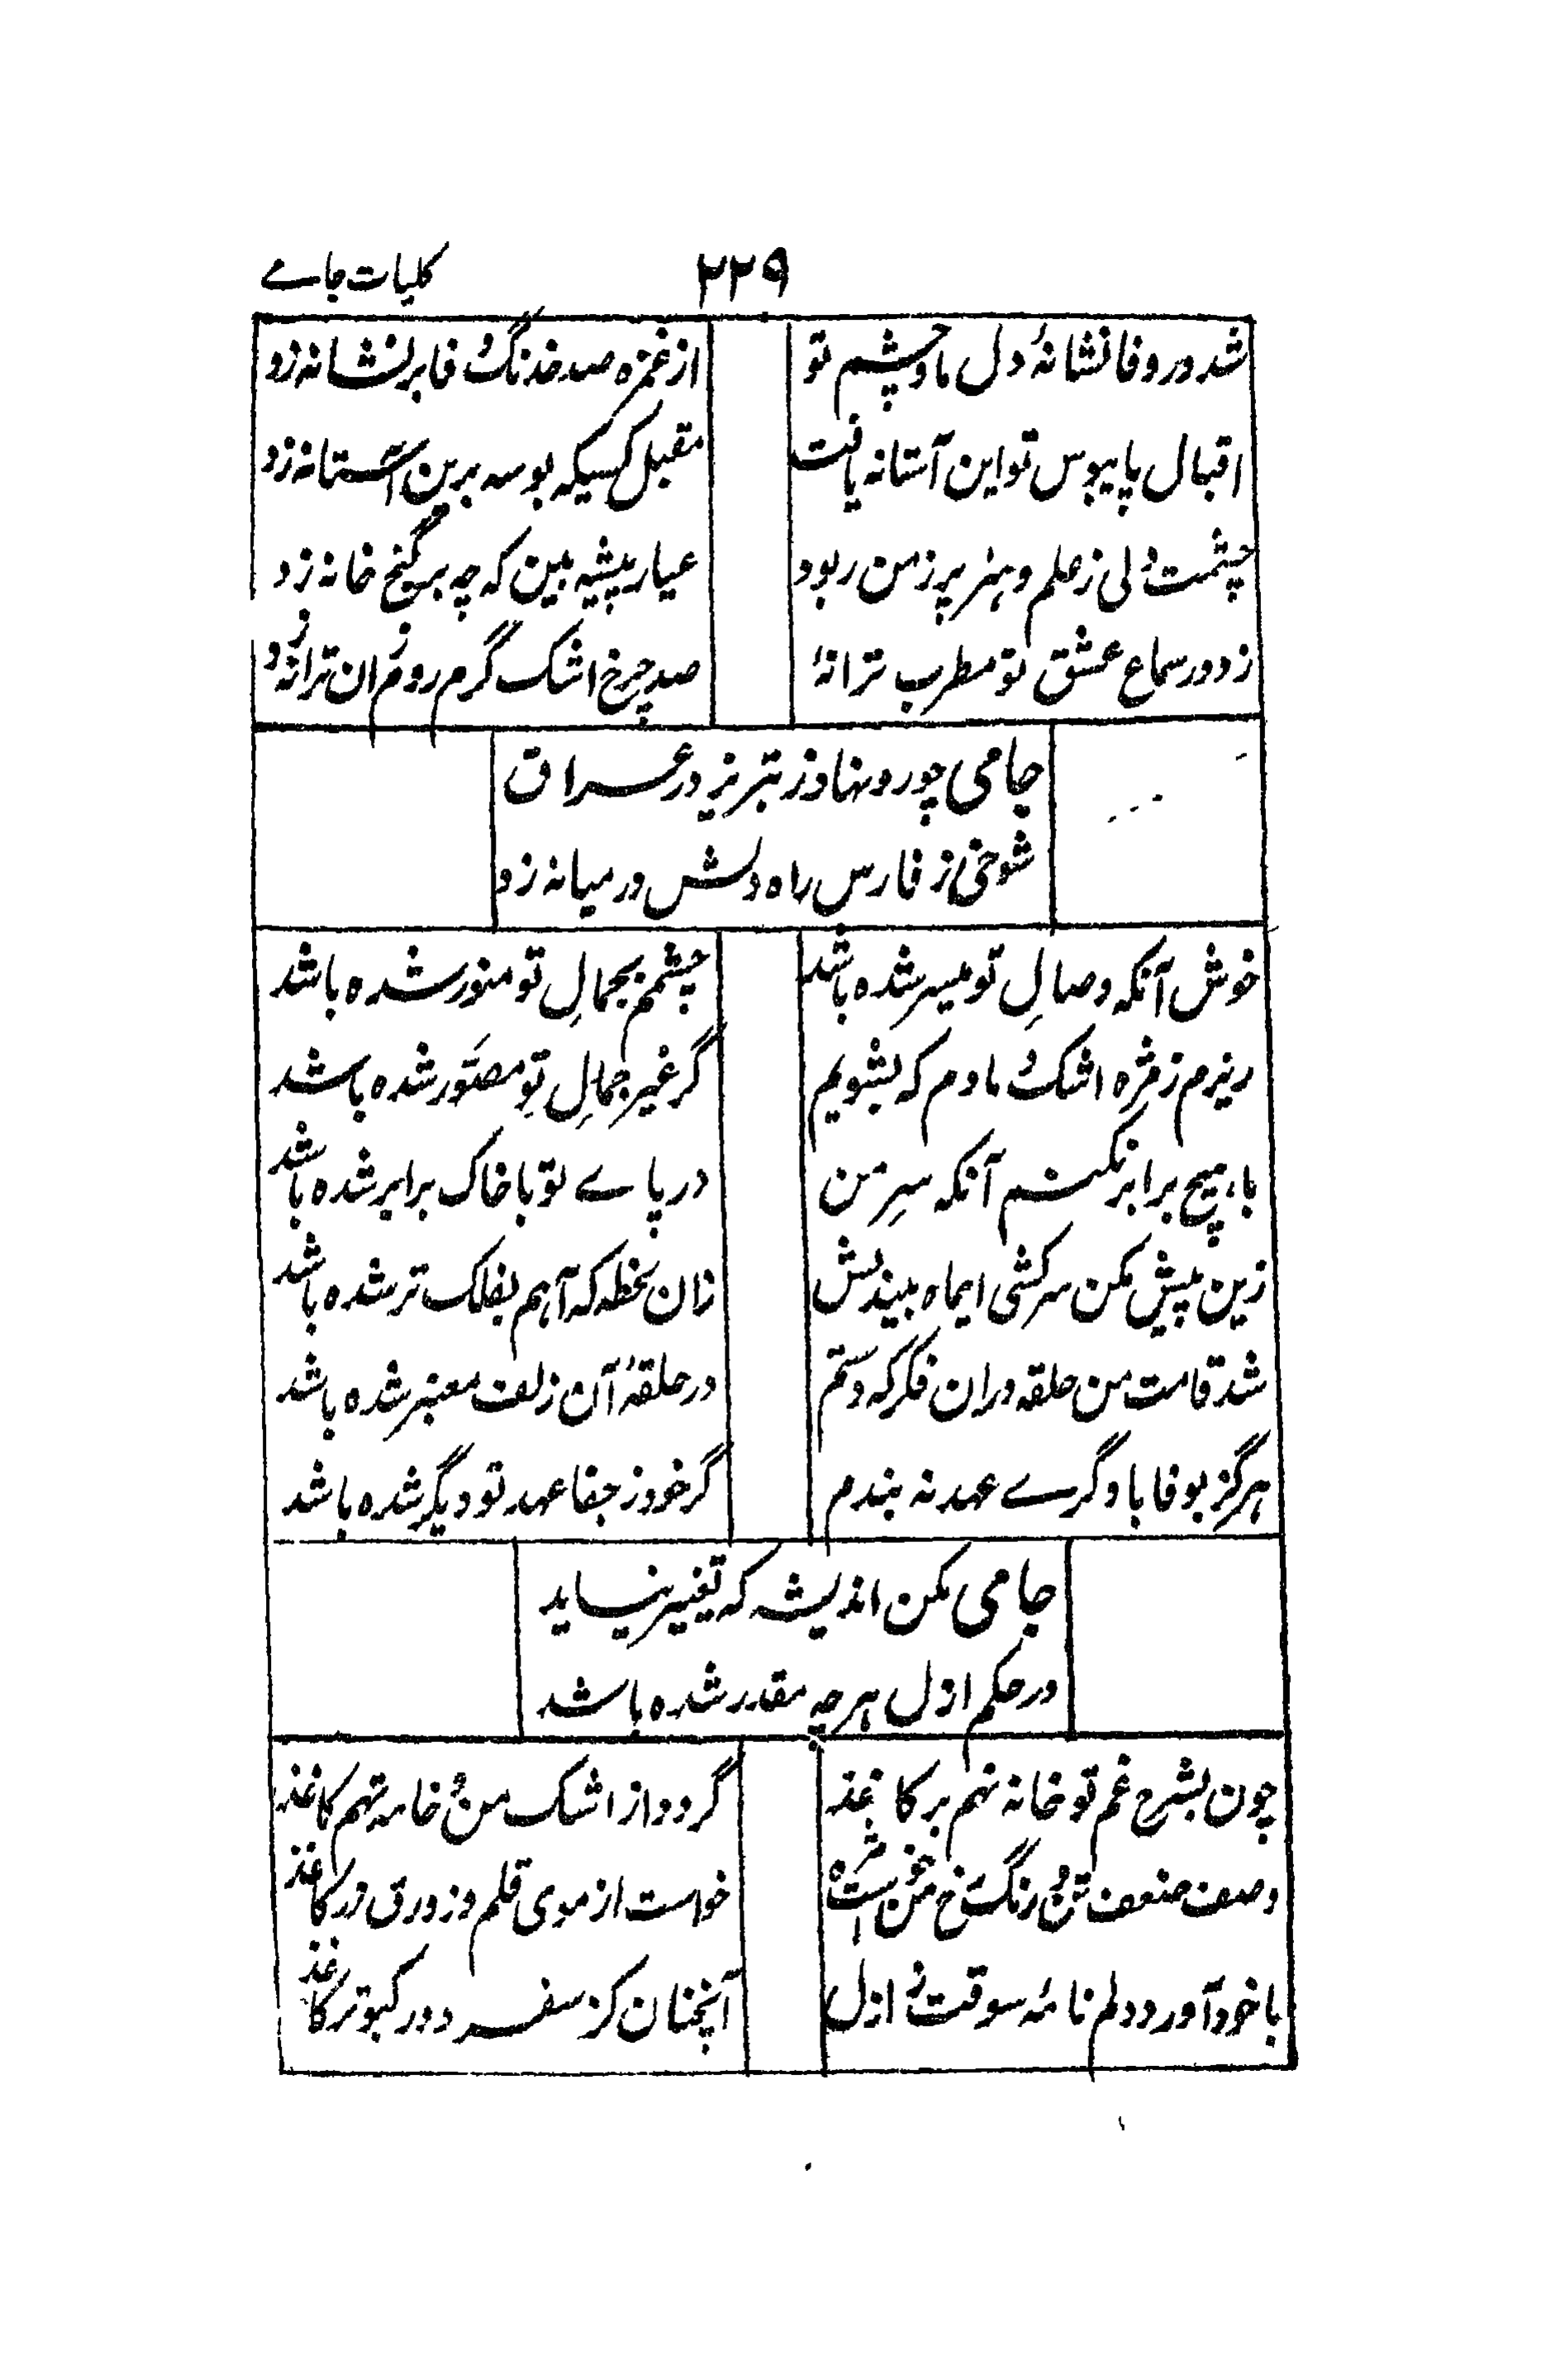 کلیات جامے
۲۲۹
شد در وفا نشانهٔ دل ما و چشم تو
از غمزه صد خدنگ وفا بر نشانه زد
اقبال پایبوس تو این آستانه یافت
مقبل کسیکه بوسه برین آستانه زد
چشمت دلی ز علم و هنر پر ز من ربود
عیار پیشه بین که چه بر گنج خانه زد
زد در سماع عشق تو مطرب ترانهٔ
صد چرخ اشک گرم روم زان ترانه زد
جامی چو رو نهاد ز تبریز در عراق
شوخی ز فارس راه دلش در میانه زد
خوش آنکه وصالِ تو میسر شده باشد
چشمم بجمالِ تو منور شده باشد
ریزم ز مژه اشک دمادم که بشویم
گر غیرِ جمالِ تو مصوّر شده باشد
با هیچ برابر نکنم آنکه سرِ من
در پاے تو با خاک برابر شده باشد
زین پیش مکن سرکشی ایماه بیندیش
زان لحظه که آهم بفلک بر شده باشد
شد قامت من حلقه دران فکر که دستم
در حلقهٔ آن زلف معنبر شده باشد
هرگز بوفا با دگرے عهد نه بندم
گر خود ز جفا عهد تو دیگر شده باشد
جامی مکن اندیشه که تغییر نیابد
در حکم ازل هر چه مقدر شده باشد
چون بشرح غم تو خامه نهم بر کاغذ
گردد از اشک من و خامه نهم کاغذ
وصف ضعف تن و رنگ رخ من خواست
خواست از موی قلم وز ورق زر کاغذ
با خود آورد دلم نامهٔ سوقت ز ازل
آنچنان کز سفر دور کبوتر کاغذ